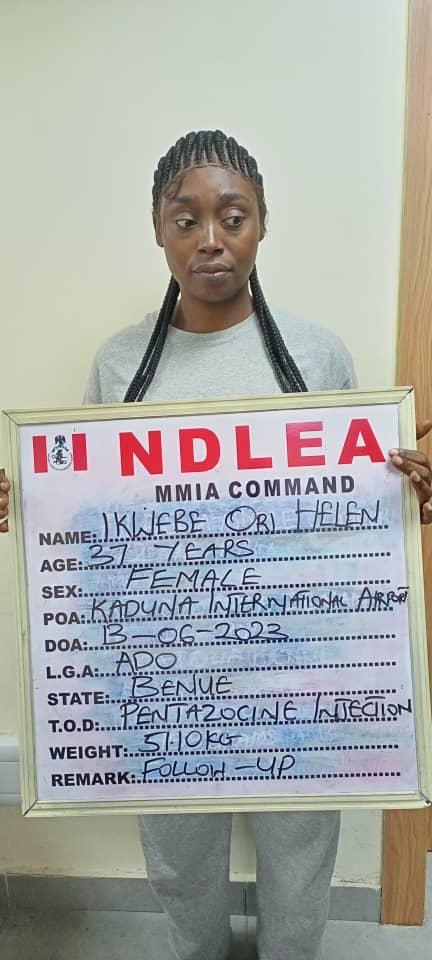 NDLEA
MMIA COMMAND
NAME: IKWEBE ORI HELEN
AGE: 37 YEARS
SEX: FEMALE
POA: KADUNA INTERNATIONAL AIRPORT
DOA: 13-06-2023
L.G.A: ADO
STATE: BENUE
T.O.D: PENTAZOCINE INJECTION
WEIGHT: 51.10KG
REMARK: FOLLOW-UP